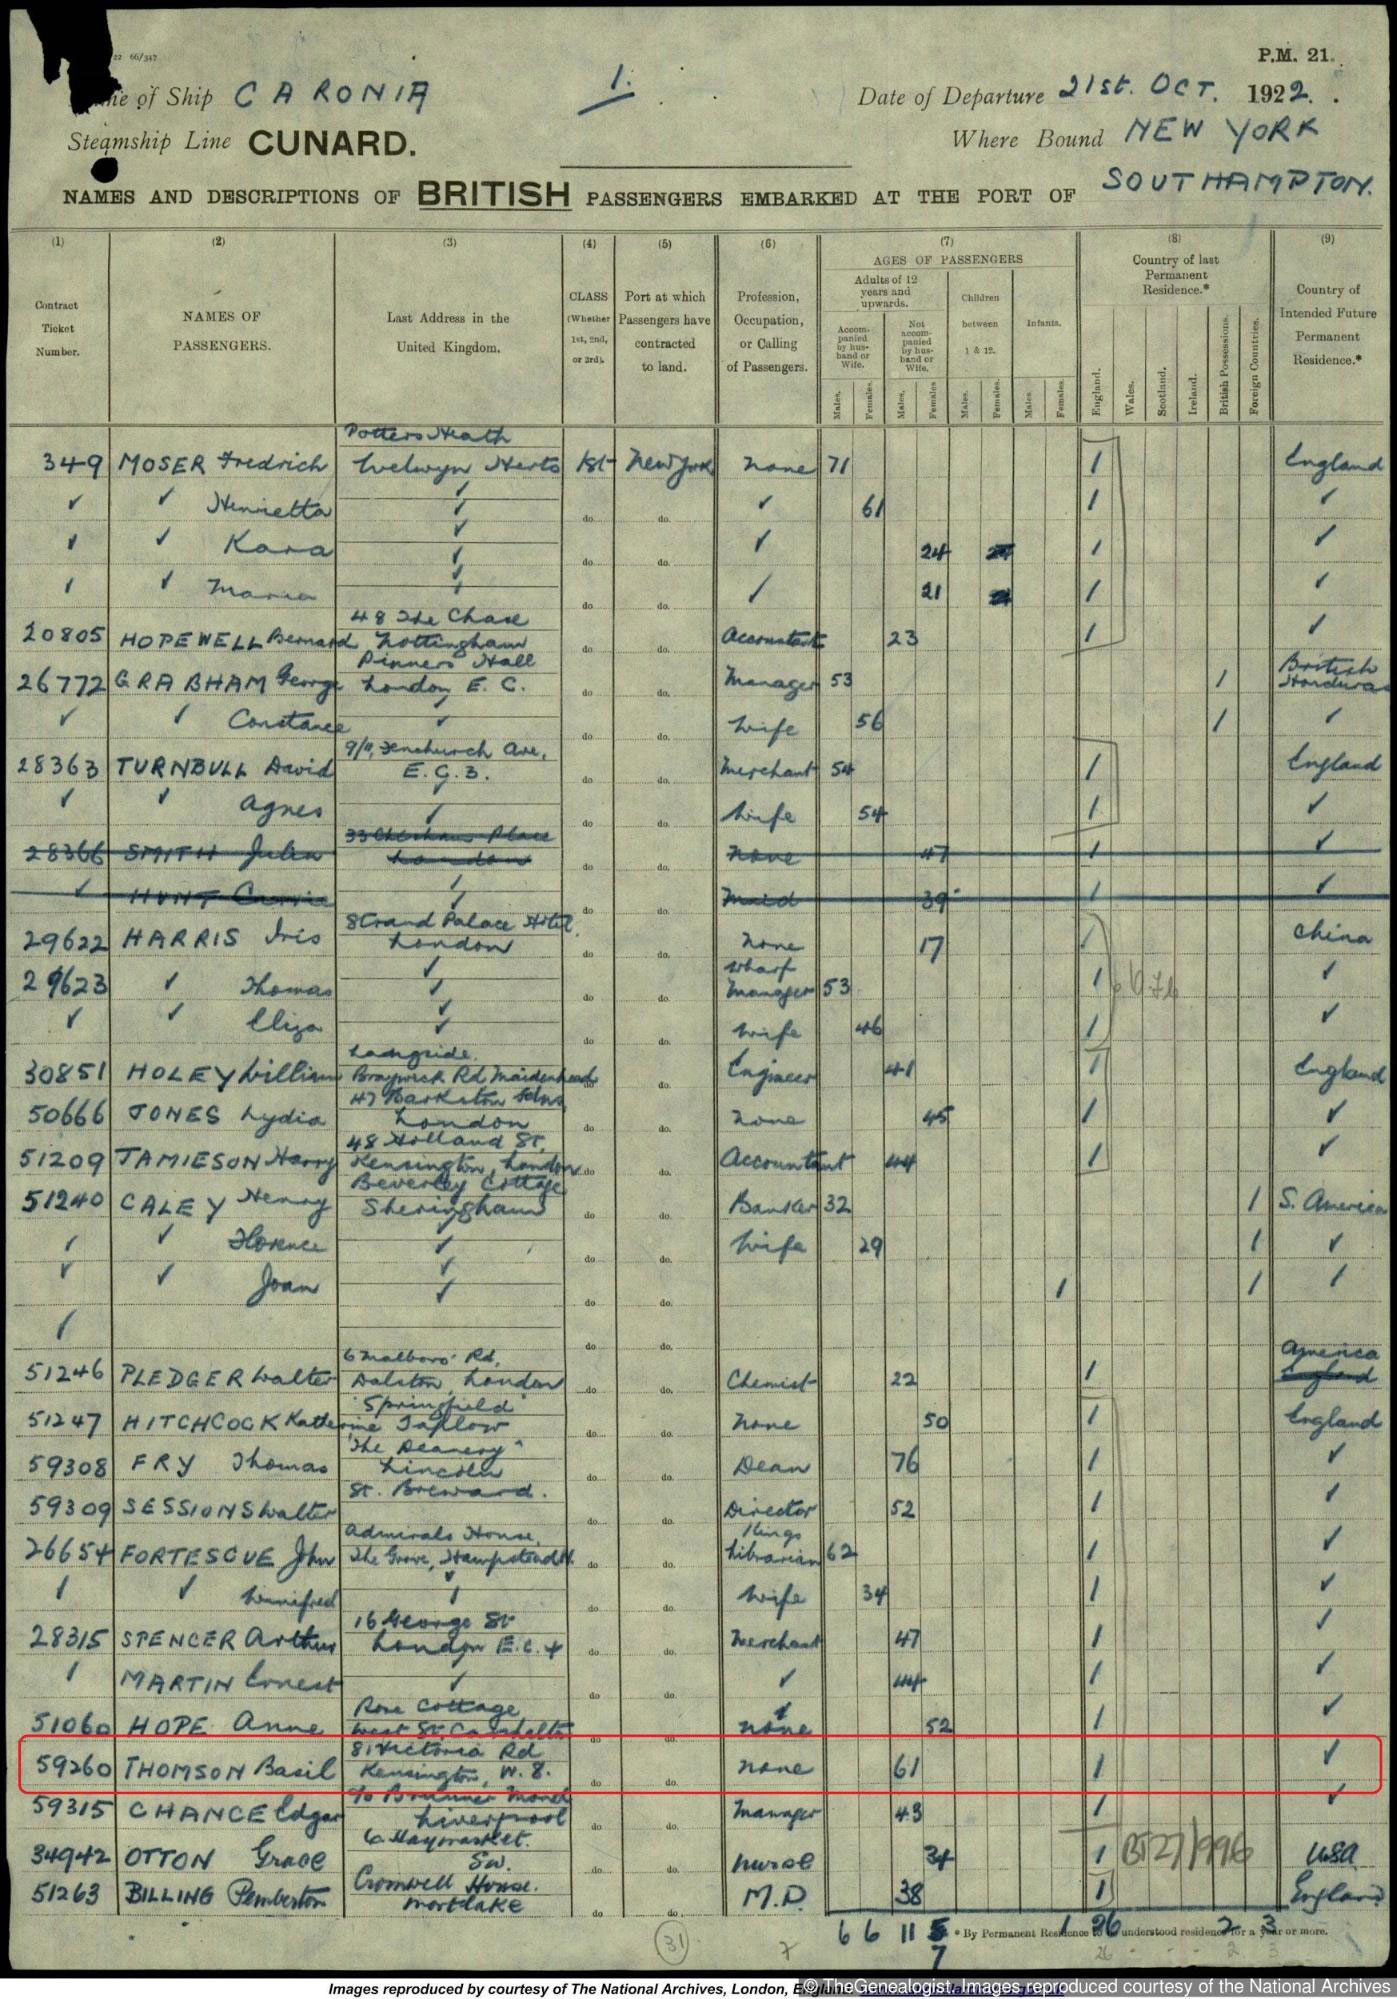 22 66/347
P.M. 21.
me of Ship CARONIA
1.
Date of Departure 21st. OCT. 1922.
Steamship Line CUNARD.
Where Bound NEW YORK
NAMES AND DESCRIPTIONS OF BRITISH PASSENGERS EMBARKED AT THE PORT OF SOUTHAMPTON.
(1) (2) (3) (4) (5) (6) (7) (8) (9)
Contract Ticket Number.
NAMES OF PASSENGERS.
Last Address in the United Kingdom.
CLASS (Whether 1st, 2nd, or 3rd).
Port at which Passengers have contracted to land.
Profession, Occupation, or Calling of Passengers.
AGES OF PASSENGERS
Adults of 12 years and upwards.
Accompanied by husband or Wife.
Not accompanied by husband or Wife.
Children between 1 & 12.
Infants.
Males. Females. Males. Females. Males. Females. Males. Females.
Country of last Permanent Residence.*
England. Wales. Scotland. Ireland. British Possessions. Foreign Countries.
Country of Intended Future Permanent Residence.*
Potters Heath
349 MOSER Fredrich Welwyn Herts 1st New York none 71 1 England
✓ ✓ Henrietta ✓ do do. ✓ 61 1 ✓
✓ ✓ Kara ✓ do do. ✓ 24 1 ✓
✓ ✓ Maria ✓ do do. ✓ 21 1 ✓
48 The Chase
20805 HOPEWELL Bernard Nottingham do do. Accountant 23 1 ✓
Pinners Hall British
26772 GRABHAM George London E.C. do do. Manager 53 1 Honduras
✓ ✓ Constance ✓ do do. Wife 56 1 ✓
9/11, Fenchurch Ave,
28363 TURNBULL David E.C.3. do do. Merchant 54 1 England
✓ ✓ Agnes ✓ do do. Wife 54 1 ✓
28366 SMITH Julia London none 47 1 ✓
✓ HUNT ✓ do do. Maid 39 1 ✓
Strand Palace Hotel,
29622 HARRIS Iris London do do. none 17 1 China
Wharf
29623 ✓ Thomas ✓ do do. Manager 53 1 ✓
✓ ✓ Eliza ✓ do do. Wife 46 1 ✓
30851 HOLEY William Braywick Rd Maidenhead do. do. Engineer 41 1 England
47 Barkston Gdns,
50666 JONES Lydia London do do. none 45 1 ✓
48 Holland St,
51209 JAMIESON Harry Kensington, London do. do. Accountant 44 1 ✓
Beverley Cottage
51240 CALEY Henry Sheringham do do. Banker 32 1 S. America
✓ ✓ Florence ✓ do do. Wife 29 1 ✓
✓ ✓ Joan ✓ do do. 1 1 ✓
✓ do do.
6 Malboro' Rd, America
51246 PLEDGER Walter Dalston, London do do. Chemist 22 1 England
"Springfield"
51247 HITCHCOCK Katherine Taplow do do. none 50 1 England
"The Deanery"
59308 FRY Thomas Lincoln do do. Dean 76 1 ✓
St. Breward.
59309 SESSIONS Walter do do. Director 52 1 ✓
Admirals House, Kings
26654 FORTESCUE John The Grove, Hampstead do do. Librarian 62 1 ✓
✓ ✓ Winnifred ✓ do do. Wife 34 1 ✓
16 George St
28315 SPENCER Arthur London E.C.4 do do. Merchant 47 1 ✓
✓ MARTIN Ernest ✓ do do. ✓ 44 1 ✓
Rose Cottage
51060 HOPE Anne West St. do do. none 52 1 ✓
81 Victoria Rd
59260 THOMSON Basil Kensington, W.8. do do. none 61 1 ✓
c/o Brunner Mond
59315 CHANCE Edgar Liverpool do do. Manager 43 1 ✓
6 Haymarket.
34942 OTTON Grace S.W. do do. nurse 34 1 BT27/996 USA
Cromwell House.
51263 BILLING Pemberton Mortlake do do M.D. 38 1 England
6 6 11 7 1 26 2 3
* By Permanent Residence to be understood residence for a year or more.
31 7 26 2 3
Images reproduced by courtesy of The National Archives, London, England
© TheGenealogist. Images reproduced courtesy of the National Archives